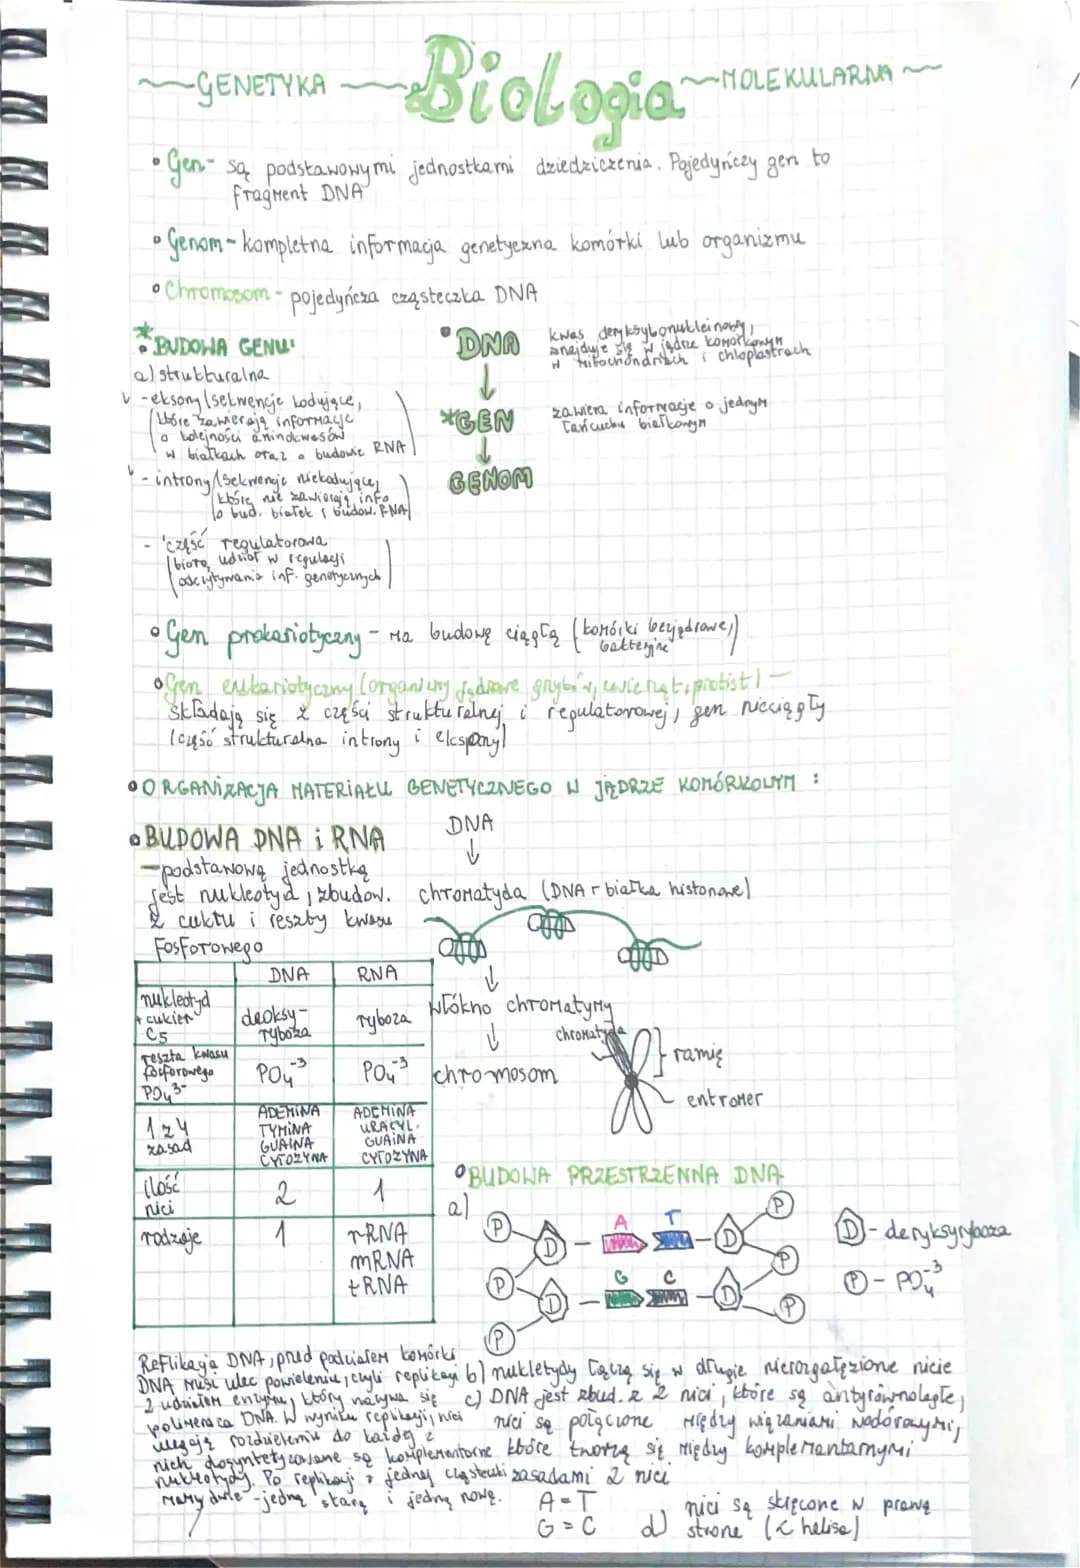 GENETYKA Biologia MOLEKULARNA
• Gen - są podstawowymi jednostkami dziedziczenia. Pojedyńczy gen to
fragment DNA
• Genom - kompletna informacja genetyczna komórki lub organizmu
• Chromosom - pojedyńcza cząsteczka DNA
* • BUDOWA GENU:
a) strukturalna
- eksony (sekwencje kodujące,
które zawierają informacje
o kolejności aminokwasów
w białkach oraz o budowie RNA)
- introny (sekwencje niekodujące,
które nie zawierają info
o bud. białek i budow. RNA)
- część regulatorowa
(biorą udział w regulacji
odczytywania inf. genetycznych)
• DNA
kwas
znajduje się w jądrze komórkowym
w mitochondriach i chloplastrach
↓
*GEN
zawiera informacje o jednym
łańcuchu białkowym
↓
GENOM
• Gen prokariotyczny - ma budowę ciągłą (komórki bezjądrowe,
bakteryjne)
• Gen eukariotyczny (organizmy jądrowe grzybów, zwierząt, protist) -
składają się z części strukturalnej i regulatorowej, gen nieciągły
(część strukturalna introny i
• ORGANIZACJA MATERIAŁU GENETYCZNEGO W JĄDRZE KOMÓRKOWYM :
• BUDOWA DNA i RNA
- podstawową jednostką
jest nukleotyd, zbudow.
z cukru i reszty kwasu
fosforowego
DNA
↓
chromatyda (DNA + białka histonowe)
↓
włókno chromatyny
↓
chromosom
chromatyda
ramię
entromer
DNA RNA
nukleotyd
+ cukier
C5
deoksy-
ryboza
ryboza
reszta kwasu
fosforowego
PO₄³⁻
PO₄⁻³ PO₄⁻³
1 z 4
zasad
ADENINA
TYMINA
GUAINA
CYTOZYNA
ADENINA
URACYL.
GUAINA
CYTOZYNA
ilość
nici
2 1
rodzaje
1
rRNA
mRNA
tRNA
• BUDOWA PRZESTRZENNA DNA
a)
P D A T D P
P D G C D P
P P
D -
P - PO₄⁻³
b) nukletydy łączą się w drugie nierozgałęzione nicie
c) DNA jest zbud. z 2 nici, które są antyrównoległe,
nici są połączone między wiązaniami wodorowymi,
które tworzą się między komplementarnymi
zasadami 2 nici
A = T
G = C
d) nici są skręcone w prawą
stronę (helisa)
Reflikacja DNA, przed podziałem komórki
DNA musi ulec powieleniu, czyli replikacji
z udziałem enzymu, który nazywa się
polimeraza DNA. W wyniku replikacji, nici
ulegają rozdzieleniu do każdej z
nich dosyntetyzowane są komplementarne
nukleotydy. Po replikacji z jednej cząsteczki
mamy dwie - jedną starą i jedną nową.